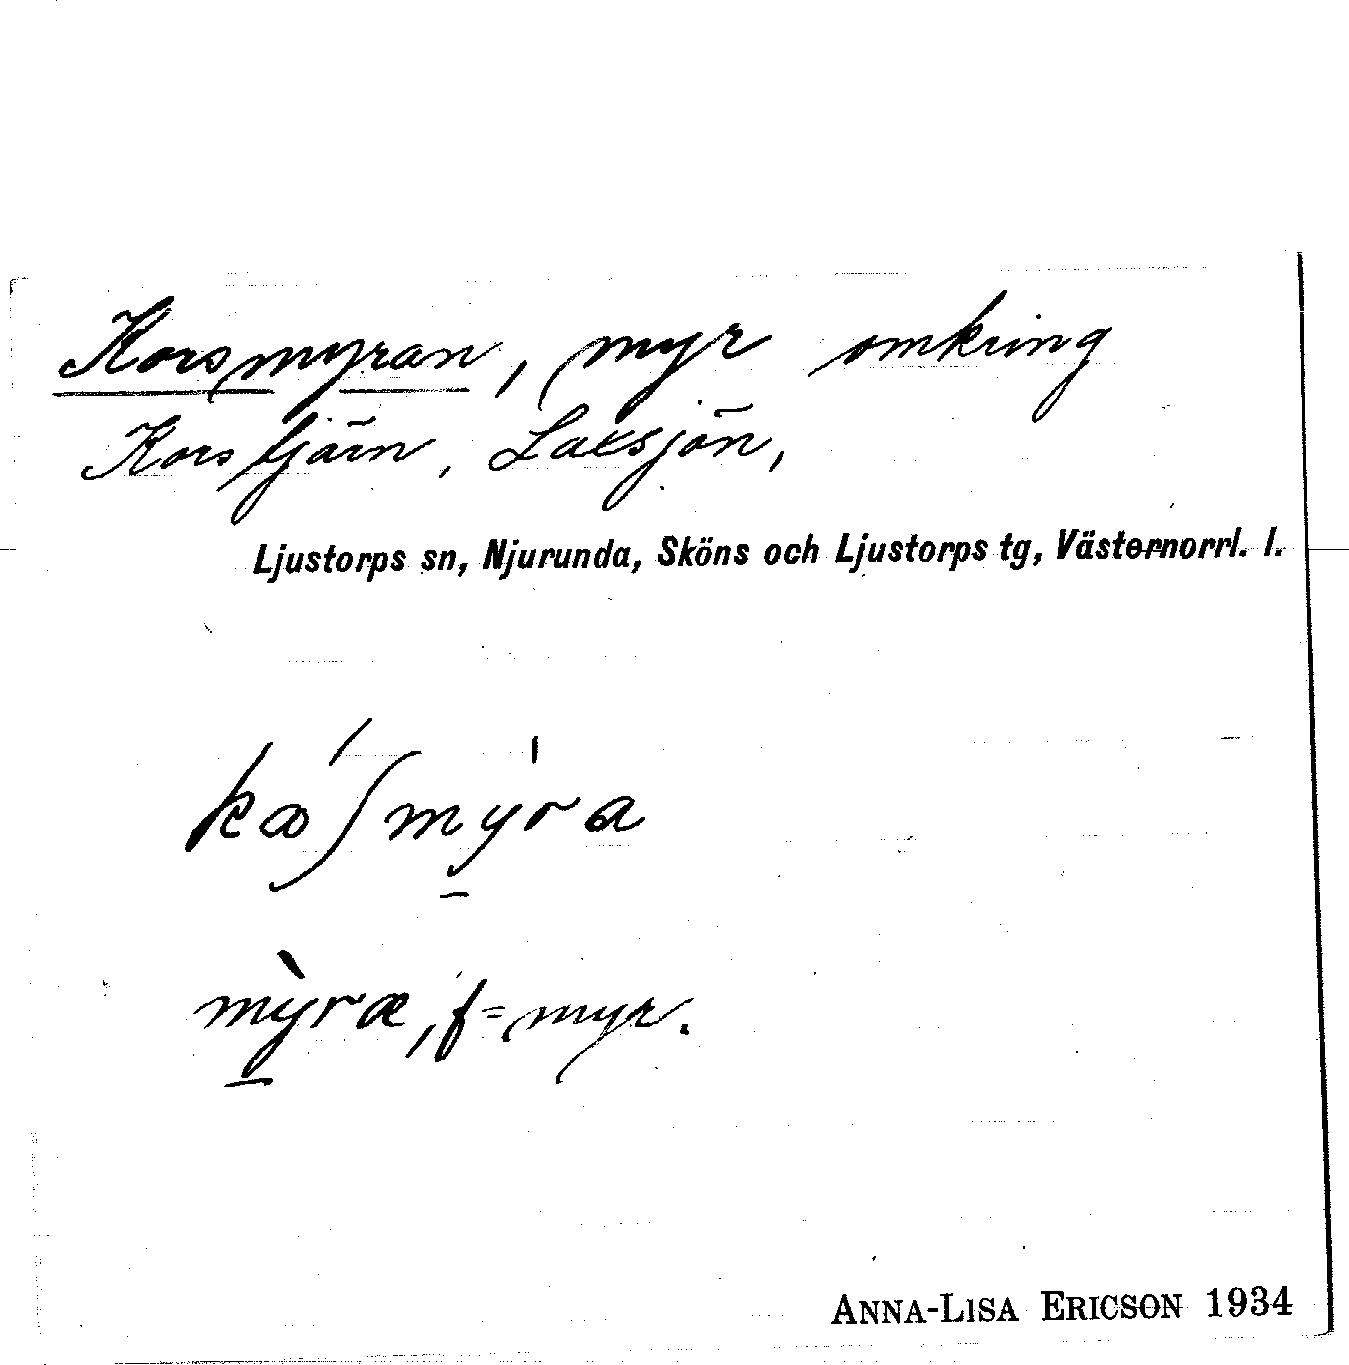 Korsmyran, myr omkring
Korstjärn, Laxsjön,
Ljustorps sn, Njurunda, Sköns och Ljustorps tg, Västernorrl. l.
mỳræ, f = myr.
ANNA-LISA ERICSON 1934